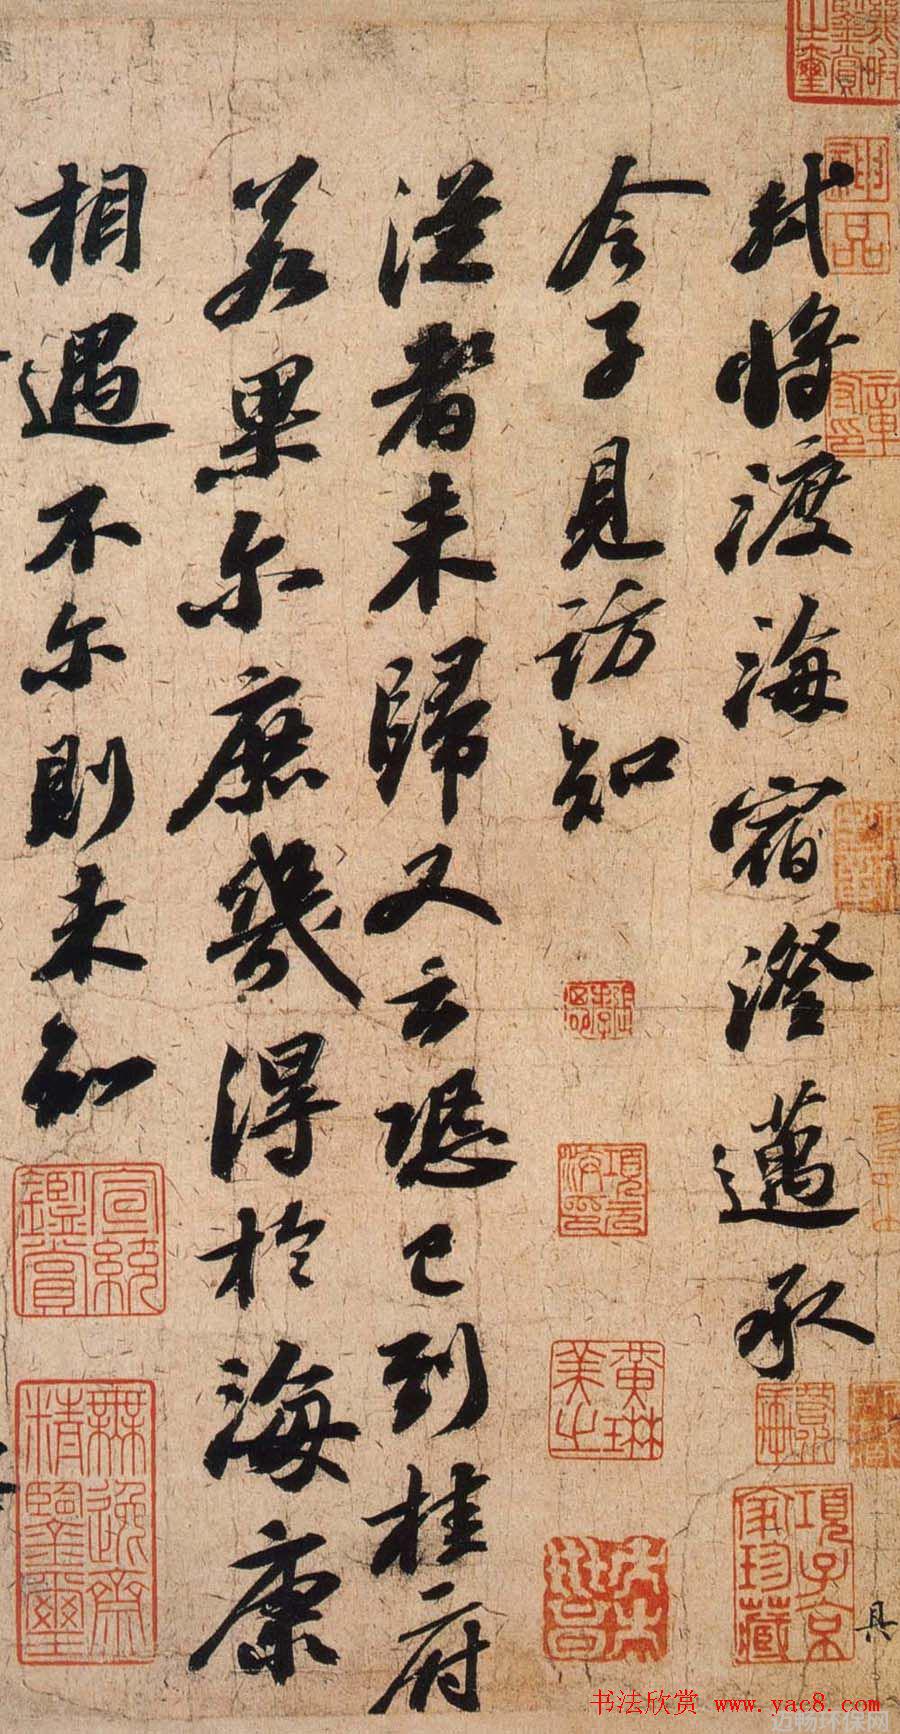 軾將渡海宿澄邁承
令子見訪知
從者未歸又云恐已到桂府
若果尔庶幾得於海康
相遇不尔則未知
神品
項元汴印
黃琳美之
項子京家珍藏
宣統鑑賞
無逸齋精鑒璽
書法欣赏 www.yac8.com